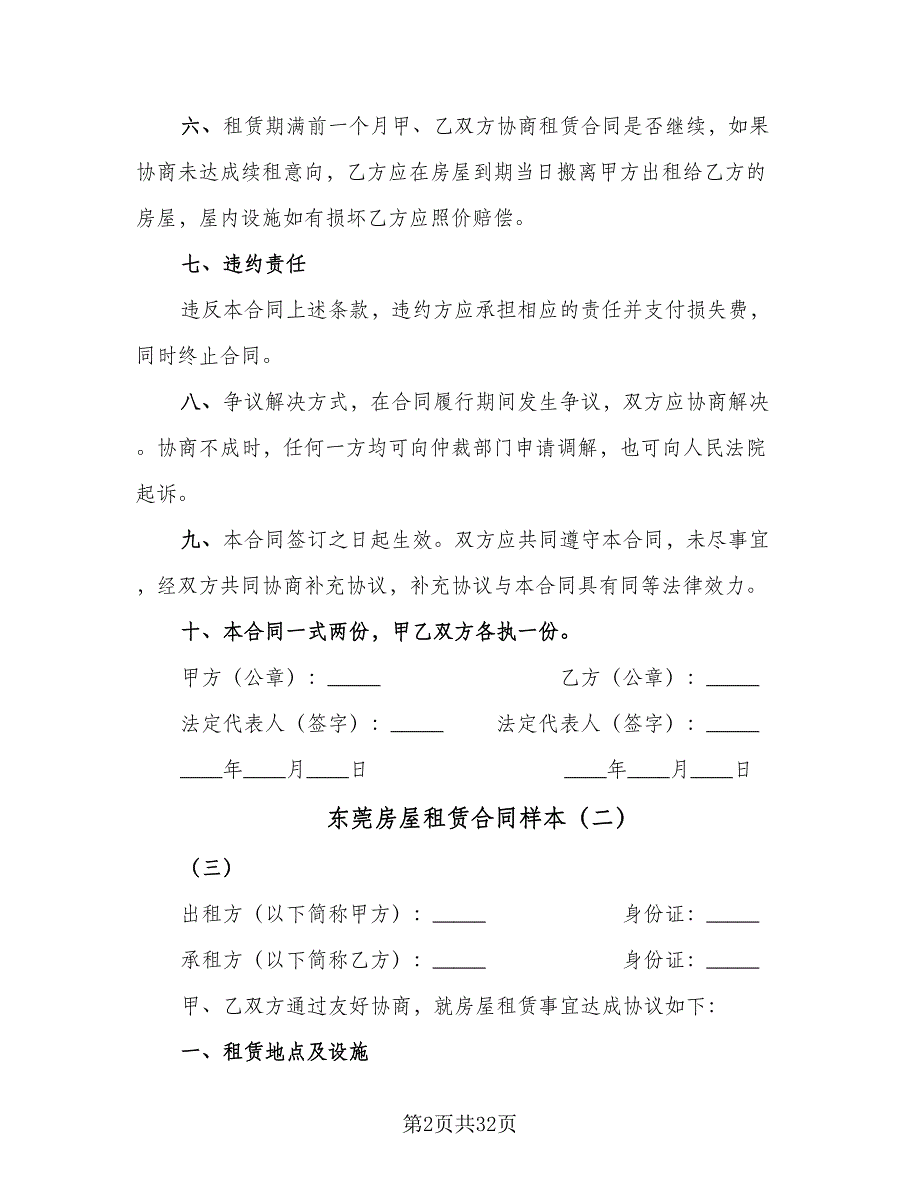 六、租赁期满前一个月甲、乙双方协商租赁合同是否继续，如果
协商未达成续租意向，乙方应在房屋到期当日搬离甲方出租给乙方的
房屋，屋内设施如有损坏乙方应照价赔偿。
七、违约责任
违反本合同上述条款，违约方应承担相应的责任并支付损失费，
同时终止合同。
八、争议解决方式，在合同履行期间发生争议，双方应协商解决
。协商不成时，任何一方均可向仲裁部门申请调解，也可向人民法院
起诉。
九、本合同签订之日起生效。双方应共同遵守本合同，未尽事宜
，经双方共同协商补充协议，补充协议与本合同具有同等法律效力。
十、本合同一式两份，甲乙双方各执一份。
甲方（公章）：_____ 乙方（公章）：_____
法定代表人（签字）：_____ 法定代表人（签字）：_____
____年____月____日 ____年____月____日
东莞房屋租赁合同样本（二）
（三）
出租方（以下简称甲方）：_____ 身份证：_____
承租方（以下简称乙方）：_____ 身份证：_____
甲、乙双方通过友好协商，就房屋租赁事宜达成协议如下：
一、租赁地点及设施
第2页共32页